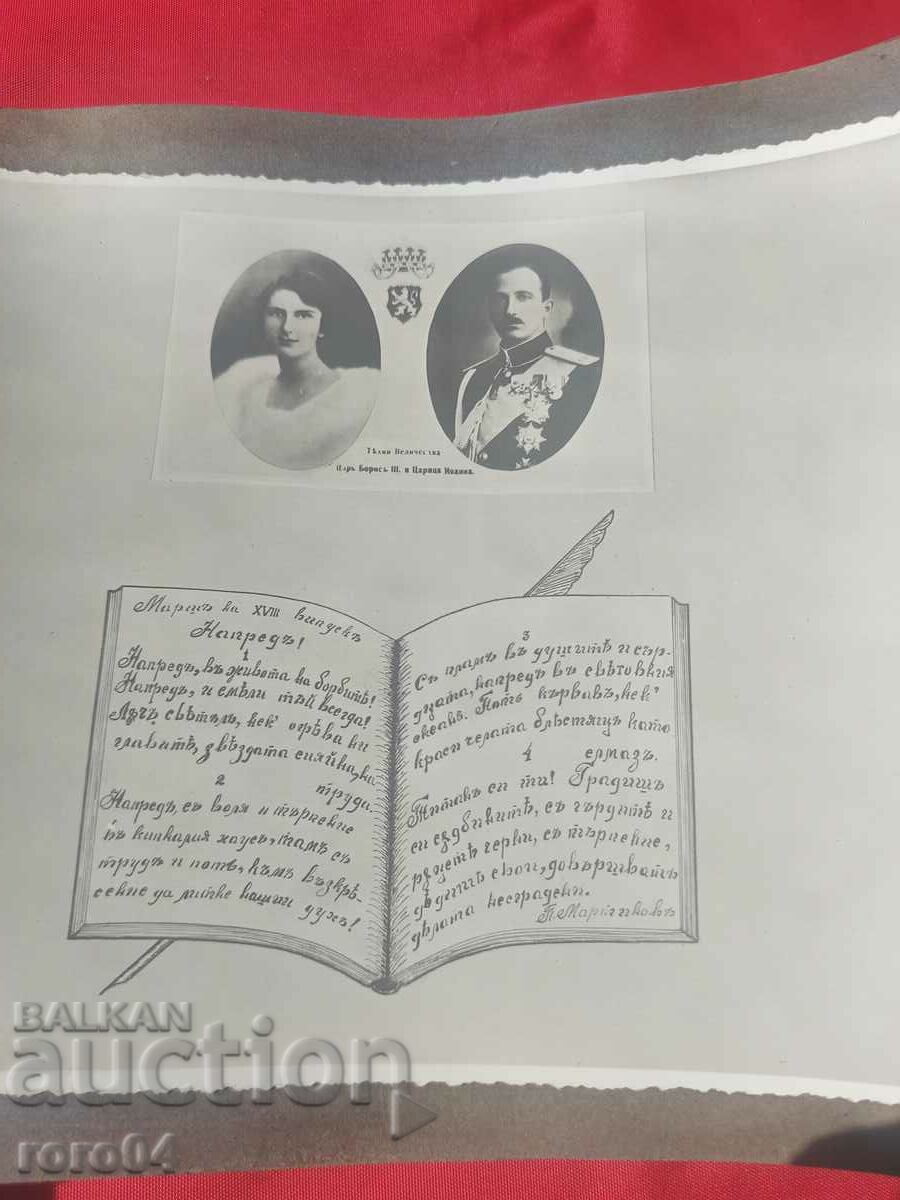 Тѣхни Величества
Царь Борисъ III. и Царица Иоанна.
Маршъ на XVIII випускъ
Напредъ!
1
Напредъ, въ живота на борбитѣ!
Напредъ, и смѣли тъй всегда!
Лъчъ свѣтълъ, нек' огрѣва ни
главитѣ, звѣздата сияйна, на
труда.
2
Напредъ, съ воля и търпение
въ хаосъ, тамъ съ
трудъ и потъ, къмъ възкрѣ-
сение да литне нашия духъ!
3
Съ пламъ въ душитѣ и сър-
дцата, напредъ въ свѣтовния
океанъ. Потъ кървавъ, нек'
краси челата блѣстящъ като
елмазъ.
4
Титанъ си ти! Градишъ
си съ гърдитѣ и
рѫцетѣ черни, съ търпение,
дѣдитѣ свои, довършвашъ
дѣлата несградени.
П. Мариниковъ
BALKAN
auction
roro04